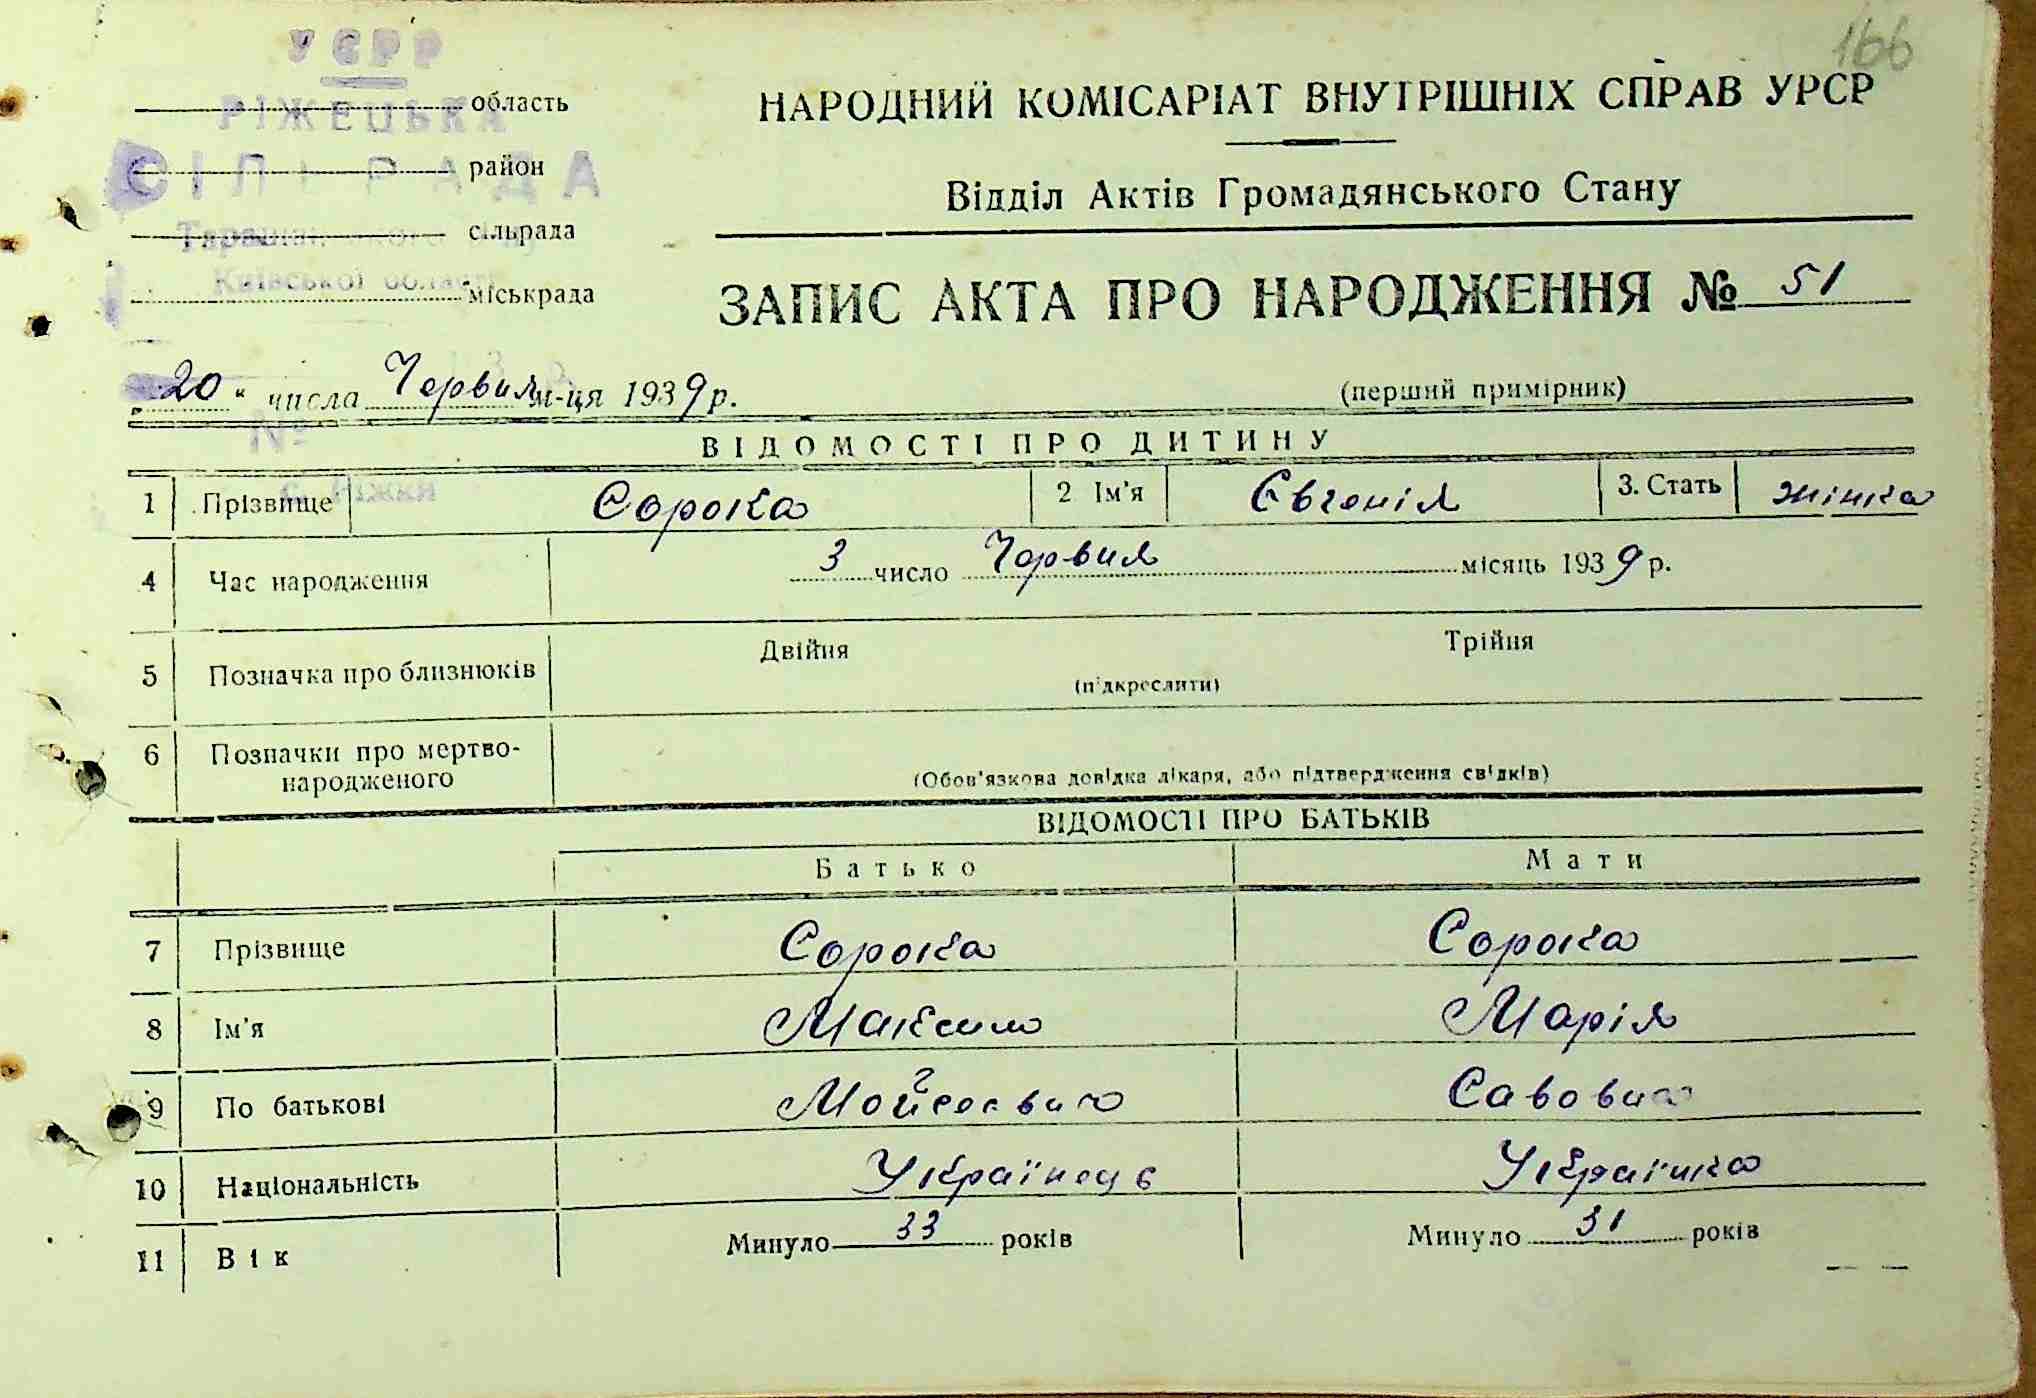 166
УСРР
РІЖЕЦЬКА
СІЛЬРАДА
Таращанського р-ну
Київської області
№
с. Ріжки
область
район
сільрада
міськрада
НАРОДНИЙ КОМІСАРІАТ ВНУТРІШНІХ СПРАВ УРСР
Відділ Актів Громадянського Стану
ЗАПИС АКТА ПРО НАРОДЖЕННЯ № 51
„20“ числа Червня м-ця 1939 р.
(перший примірник)
ВІДОМОСТІ ПРО ДИТИНУ
1 Прізвище Сорока 2 Ім’я Євгенія 3. Стать жінка
4 Час народження 3 число Червня місяць 1939 р.
5 Позначка про близнюків Двійня Трійня
(підкреслити)
6 Позначки про мертво-
народженого
(Обов’язкова довідка лікаря, або підтвердження свідків)
ВІДОМОСТІ ПРО БАТЬКІВ
Батько Мати
7 Прізвище Сорока Сорока
8 Ім’я Максим Марія
9 По батькові Мойсеєвич Савовна
10 Національність Українець Українка
11 Вік Минуло 33 років Минуло 31 років